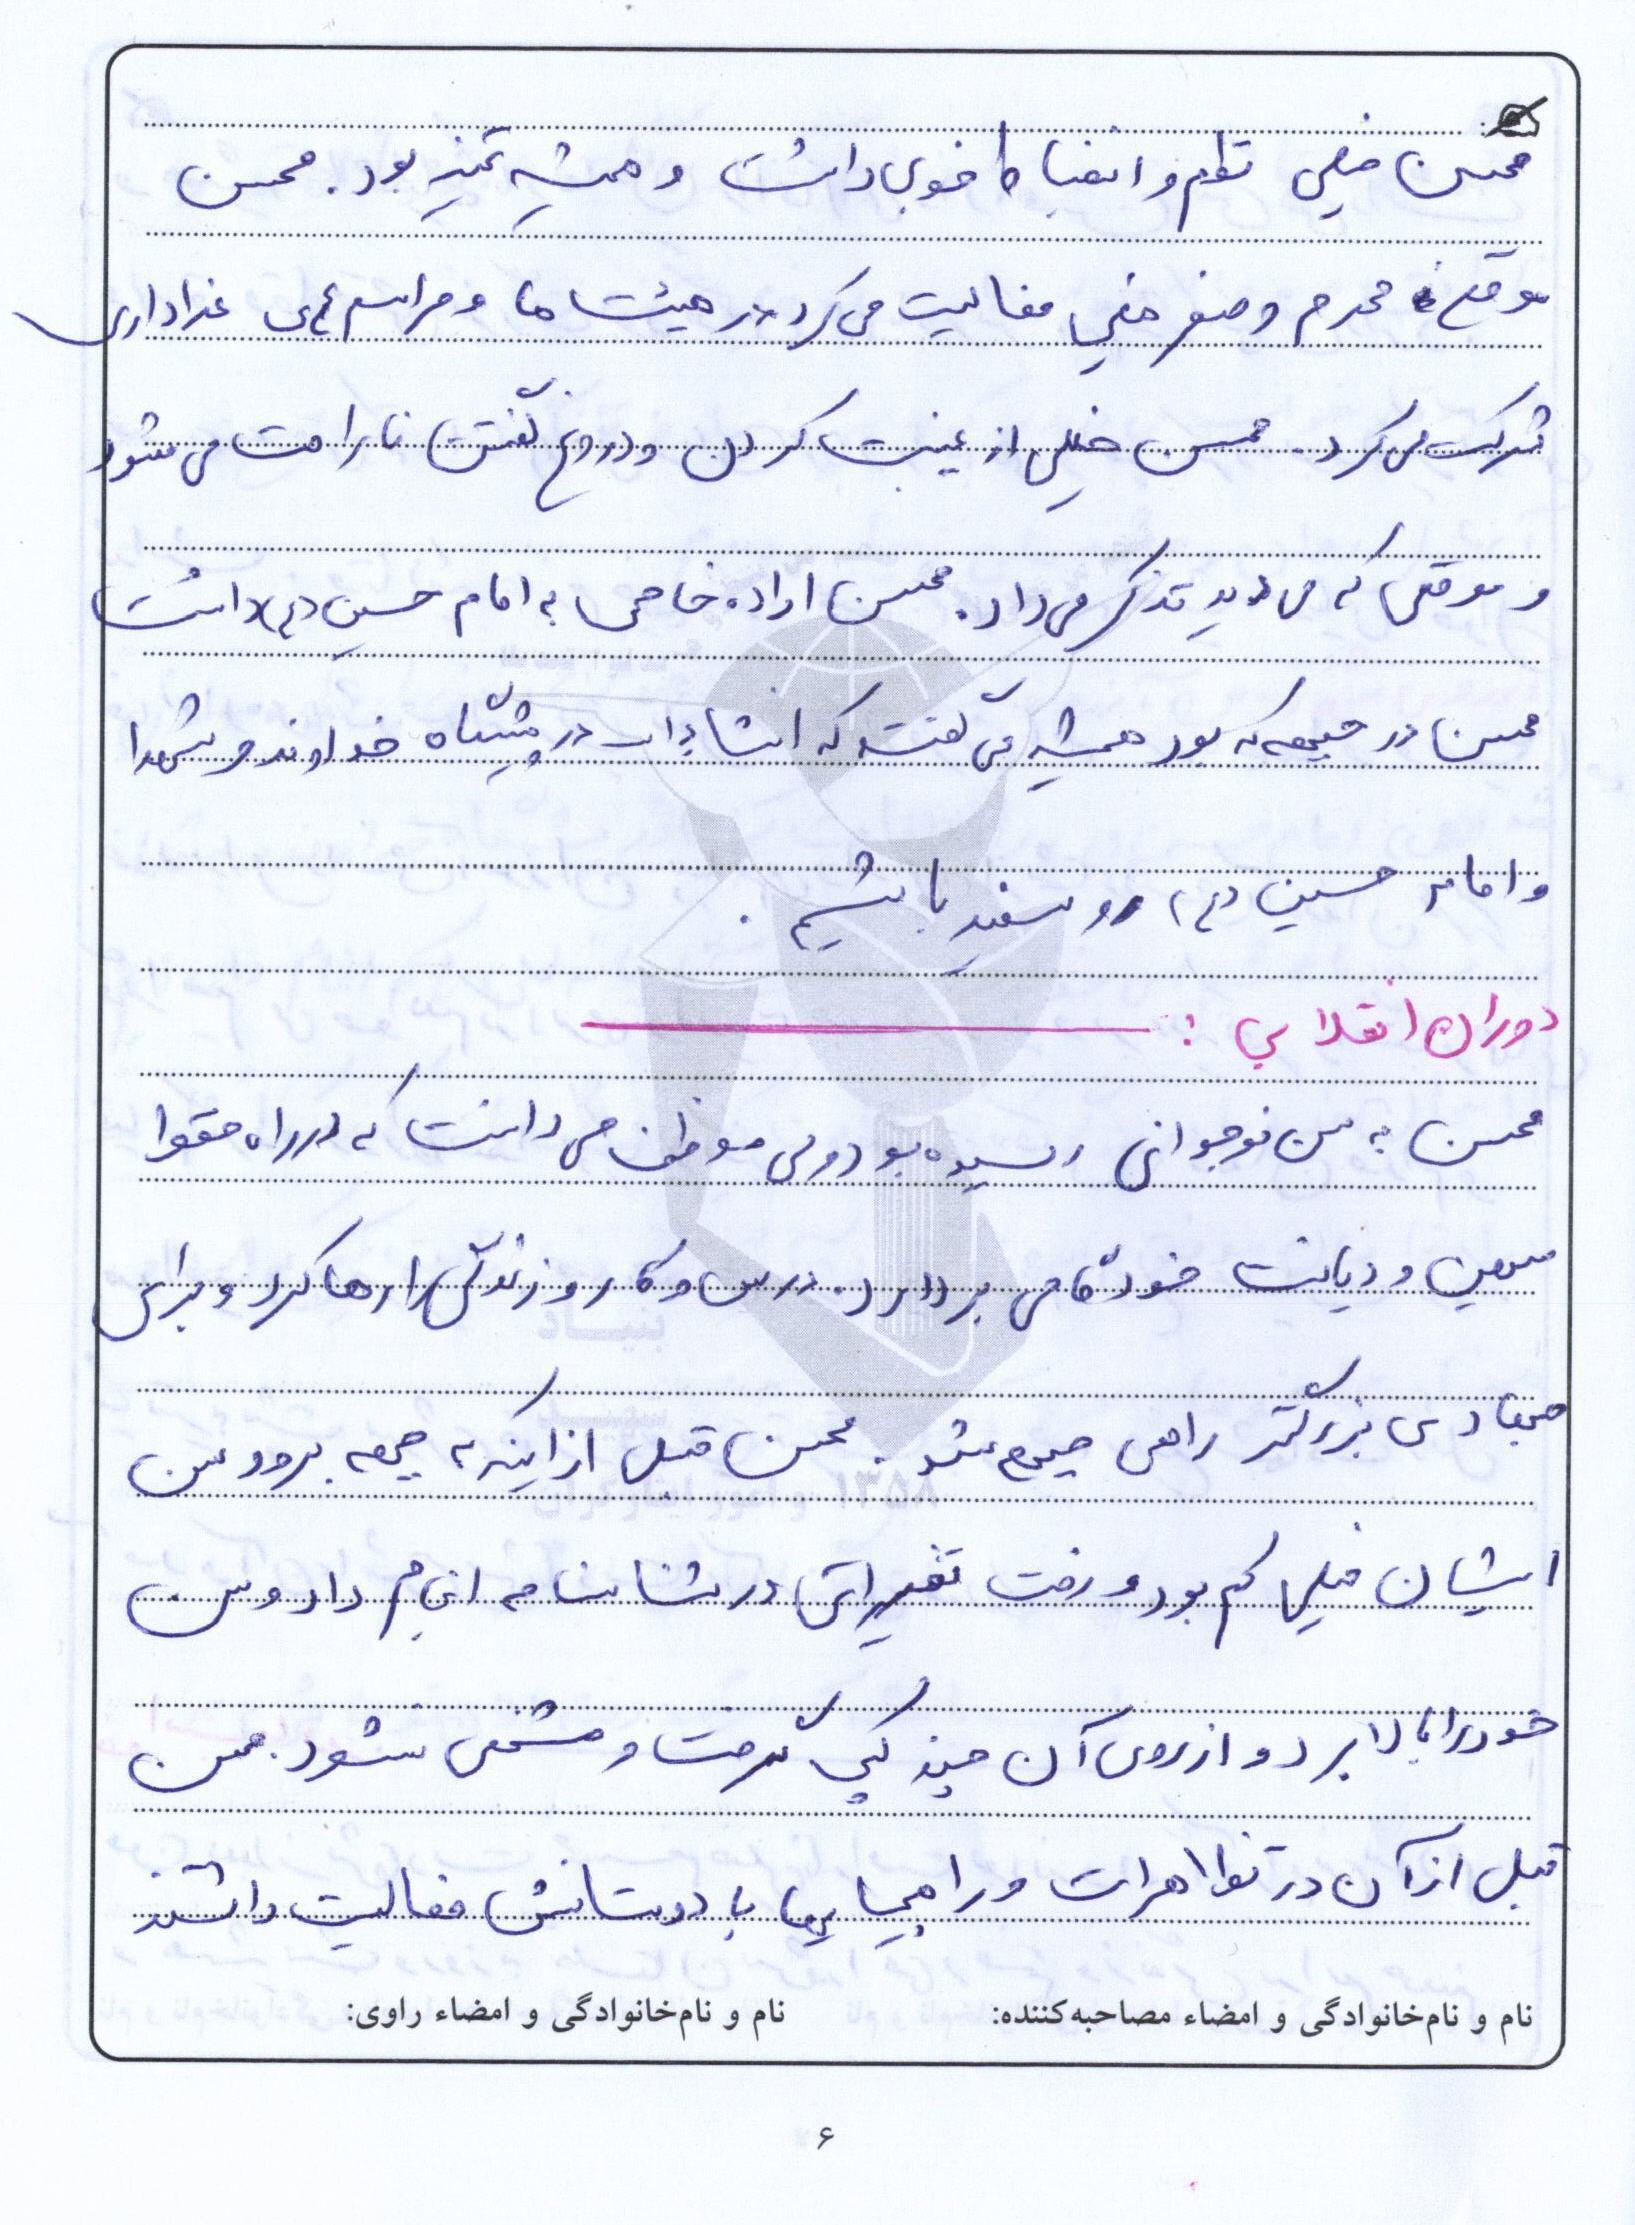 محسن خیلی نظم و انضباط خوبی داشت و همیشه تمیز بود. محسن
موقع محرم و صفر خیلی فعالیت می کرد در هیئت ها و مراسم های عزاداری
شرکت می کرد. محسن خیلی از غیبت کردن و دروغ گفتن ناراحت می شود
و موقعی که می دید تذکر می داد. محسن اراده خاصی به امام حسین (ع) داشت
محسن در جبهه که بود همیشه می گفت که انشاءالله در پیشگاه خداوند و شهدا
و امام حسین (ع) رو سفید باشیم.
دوران انقلابی :
محسن به سن نوجوانی رسیده بود ولی موظف می دانست که در راه تقوا
میهن و دیانت خود گامی بردارد. درس و کار و زندگی را رها کرد و برای
جهادی بزرگتر راهی جبهه شد. محسن قبل از اینکه به جبهه برود سن
ایشان خیلی کم بود و رفت تغییراتی در شناسنامه انجام داد و سن
خود را بالا برد و از روی آن چند کپی گرفت و مشخص نشود. محسن
قبل از آن در تظاهرات و راهپیمایی ها با دوستانش فعالیت داشتند
نام و نام‌خانوادگی و امضاء مصاحبه‌کننده: نام و نام‌خانوادگی و امضاء راوی:
بنیاد
۱۳۵۸
۶